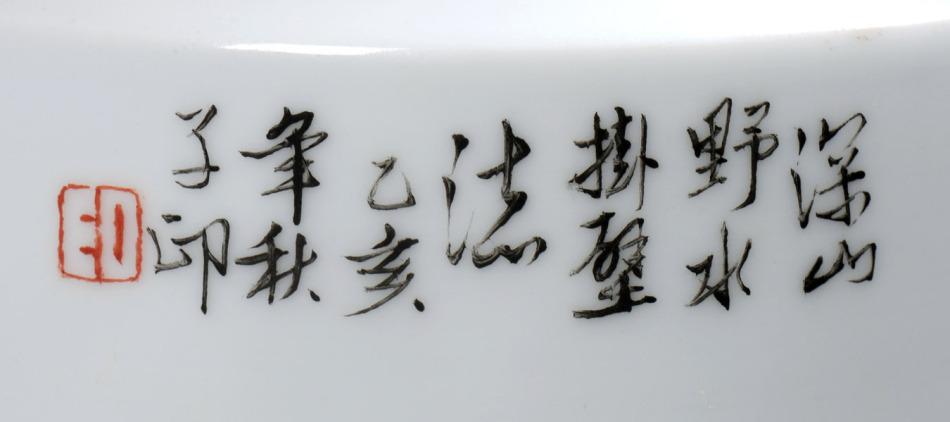 深山
野水
掛壁
法
乙亥
年秋
子印
印